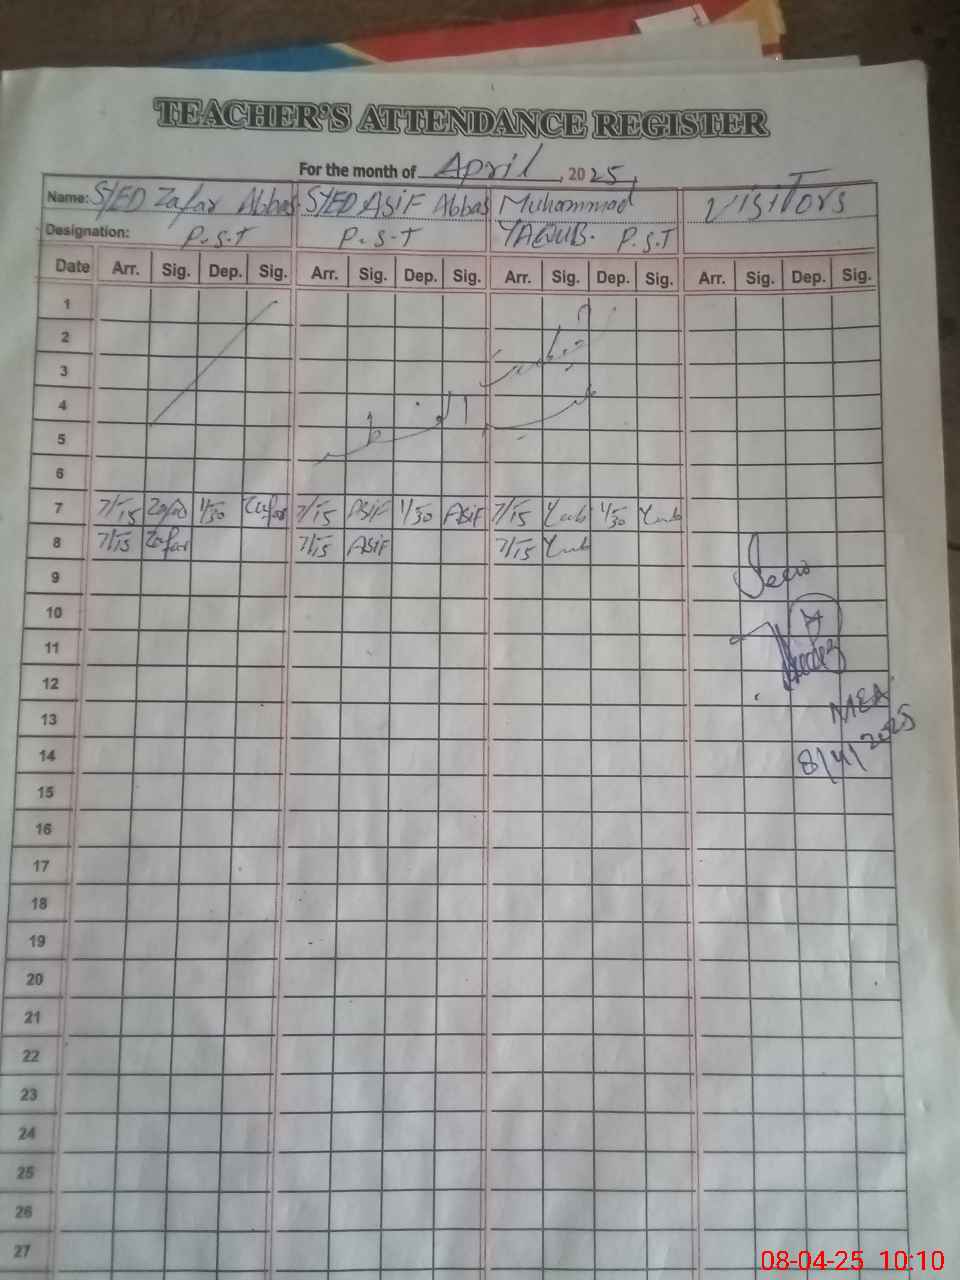 TEACHER'S ATTENDANCE REGISTER
For the month of April, 2025,
Name: SYED Zafar Abbas SYED ASIF Abbas Muhammad Visitors
Designation: P.S.T P.S.T YAQUB. P.S.T
Date Arr. Sig. Dep. Sig. Arr. Sig. Dep. Sig. Arr. Sig. Dep. Sig. Arr. Sig. Dep. Sig.
1
2
3
4
5
6
7 7/15 Zafar 1/30 Zafar 7/15 ASIF 1/30 ASIF 7/15 Yaub 1/30 Yaub
8 7/15 Zafar 7/15 ASIF 7/15 Yaub
9
Seen
10
11
12
13 MEA
14 8/4/2025
15
16
17
18
19
20
21
22
23
24
25
26
27
08-04-25 10:10